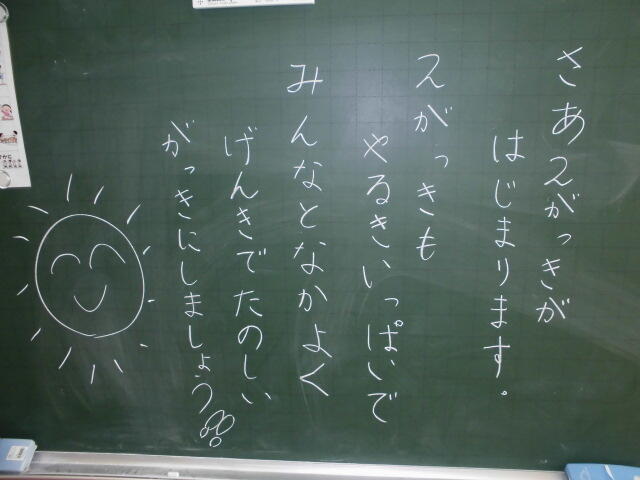 さあ2がっきが
はじまります。
2がっきも
やるきいっぱいで
みんなとなかよく
げんきでたのしい
がっきにしましょう!!